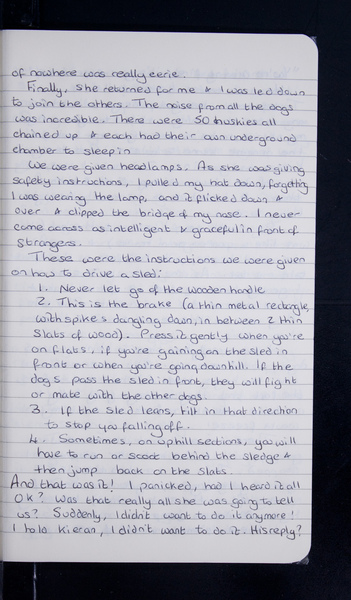 of nowhere was really eerie.
Finally, she returned for me & I was led down
to join the others. The noise from all the dogs
was incredible. There were 50 huskies all
chained up & each had their own underground
chamber to sleep in.
We were given headlamps. As she was giving
safety instructions, I pulled my hat down, forgetting
I was wearing the lamp, and it flicked down &
over & clipped the bridge of my nose. I never
come across as intelligent & graceful in front of
strangers.
These were the instructions we were given
on how to drive a sled:
1. Never let go of the wooden handle
2. This is the brake (a thin metal rectangle,
with spikes dangling down, in between 2 thin
slats of wood). Press it gently when you're
on flats, if you're gaining on the sled in
front or when you're going downhill. If the
dogs pass the sled in front, they will fight
or mate with the other dogs.
3. If the sled leans, tilt in that direction
to stop you falling off.
4. Sometimes, on uphill sections, you will
have to run or scoot behind the sledge &
then jump back on the slats.
And that was it! I panicked, had I heard it all
OK? Was that really all she was going to tell
us? Suddenly, I didn't want to do it anymore!
I told Kieran, I didn't want to do it. His reply?